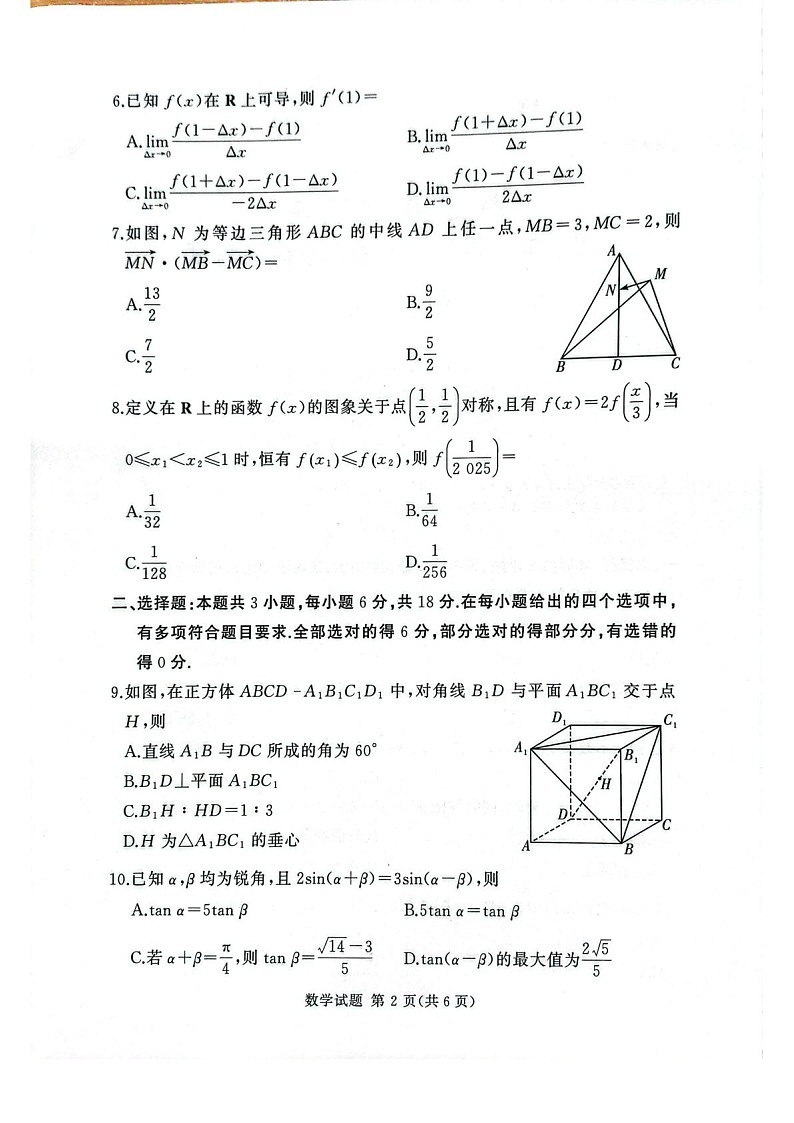 6.已知 f(x)在 R 上可导,则 f′(1)=
A.lim_{Δx→0} \frac{f(1-Δx)-f(1)}{Δx} B.lim_{Δx→0} \frac{f(1+Δx)-f(1)}{Δx}
C.lim_{Δx→0} \frac{f(1+Δx)-f(1-Δx)}{-2Δx} D.lim_{Δx→0} \frac{f(1)-f(1-Δx)}{2Δx}
7.如图,N 为等边三角形 ABC 的中线 AD 上任一点,MB=3,MC=2,则
\overrightarrow{MN}·(\overrightarrow{MB}-\overrightarrow{MC})=
A.\frac{13}{2} B.\frac{9}{2}
C.\frac{7}{2} D.\frac{5}{2}
A
M
N
B D C
8.定义在 R 上的函数 f(x)的图象关于点(\frac{1}{2},\frac{1}{2})对称,且有 f(x)=2f(\frac{x}{3}),当
0≤x₁<x₂≤1 时,恒有 f(x₁)≤f(x₂),则 f(\frac{1}{2 025})=
A.\frac{1}{32} B.\frac{1}{64}
C.\frac{1}{128} D.\frac{1}{256}
二、选择题:本题共 3 小题,每小题 6 分,共 18 分.在每小题给出的四个选项中,
有多项符合题目要求.全部选对的得 6 分,部分选对的得部分分,有选错的
得 0 分.
9.如图,在正方体 ABCD-A₁B₁C₁D₁ 中,对角线 B₁D 与平面 A₁BC₁ 交于点
H,则
A.直线 A₁B 与 DC 所成的角为 60°
B.B₁D⊥平面 A₁BC₁
C.B₁H∶HD=1∶3
D.H 为△A₁BC₁ 的垂心
D₁ C₁
A₁ B₁
H
D C
A B
10.已知 α,β 均为锐角,且 2sin(α+β)=3sin(α-β),则
A.tan α=5tan β B.5tan α=tan β
C.若 α+β=\frac{π}{4},则 tan β=\frac{\sqrt{14}-3}{5} D.tan(α-β)的最大值为\frac{2\sqrt{5}}{5}
数学试题 第 2 页(共 6 页)